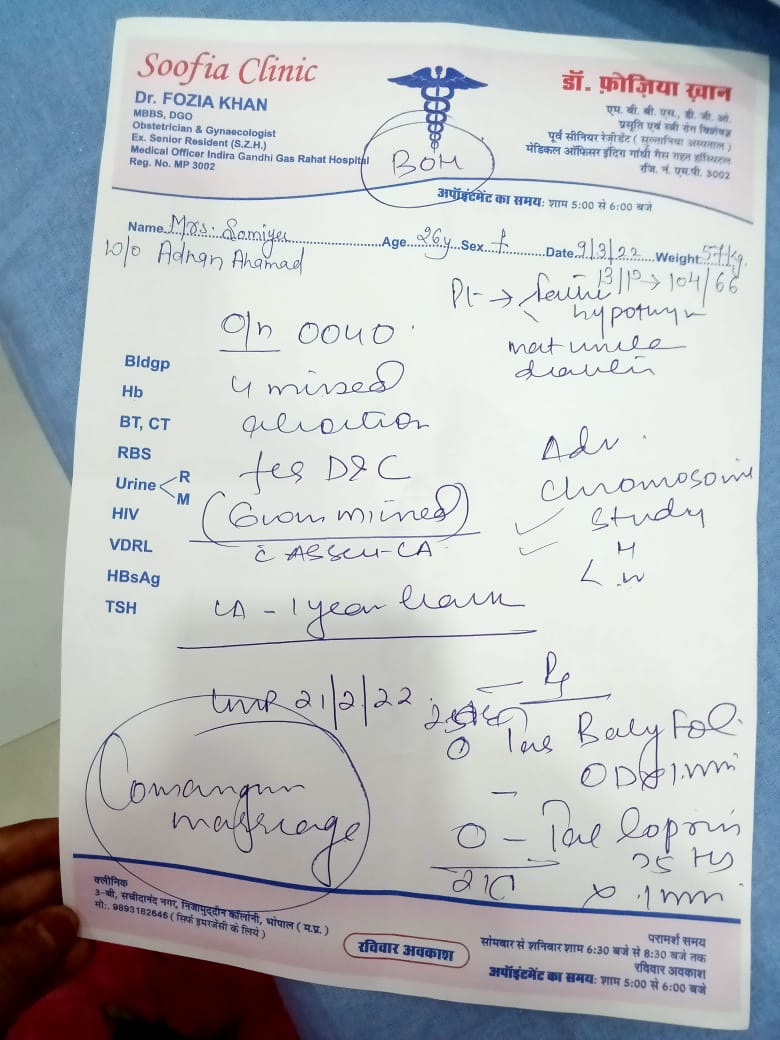 Soofia Clinic
Dr. FOZIA KHAN
MBBS, DGO
Obstetrician & Gynaecologist
Ex. Senior Resident (S.Z.H.)
Medical Officer Indira Gandhi Gas Rahat Hospital
Reg. No. MP 3002
BOH
डॉ. फ़ोज़िया ख़ान
एम. बी. बी. एस., डी. जी. ओ.
प्रसूति एवं स्त्री रोग विशेषज्ञ
पूर्व सीनियर रेजीडेंट ( सुल्तानिया अस्पताल )
मेडिकल ऑफिसर इंदिरा गांधी गैस राहत हॉस्पिटल
रजि. नं. एम.पी. 3002
अपॉइंटमेंट का समय: शाम 5:00 से 6:00 बजे
Name Mrs. Samiya Age 26y Sex f Date 9/3/22 Weight 57kg.
W/o Adnan Ahamad
104/66
O/h 0040
mat uncle
Bldgp
Hb
4 missed
BT, CT
RBS
Urine R M
fes D&C
HIV
VDRL
HBsAg
TSH
Adv.
Chromosome
Study
H
W
- 1 year
LMP 21/2/22
Rx
Consangun
marriage
Tab Baby Fol.
OD x 1
Tab
75 HS
x 1
क्लीनिक
3-बी, सचीदानंद नगर, निजामुद्दीन कॉलोनी, भोपाल ( म.प्र. )
मो:. 9893182646 ( सिर्फ इमरजेंसी के लिये )
रविवार अवकाश
परामर्श समय
सोमवार से शनिवार शाम 6:30 बजे से 8:30 बजे तक
रविवार अवकाश
अपॉइंटमेंट का समय: शाम 5:00 से 6:00 बजे